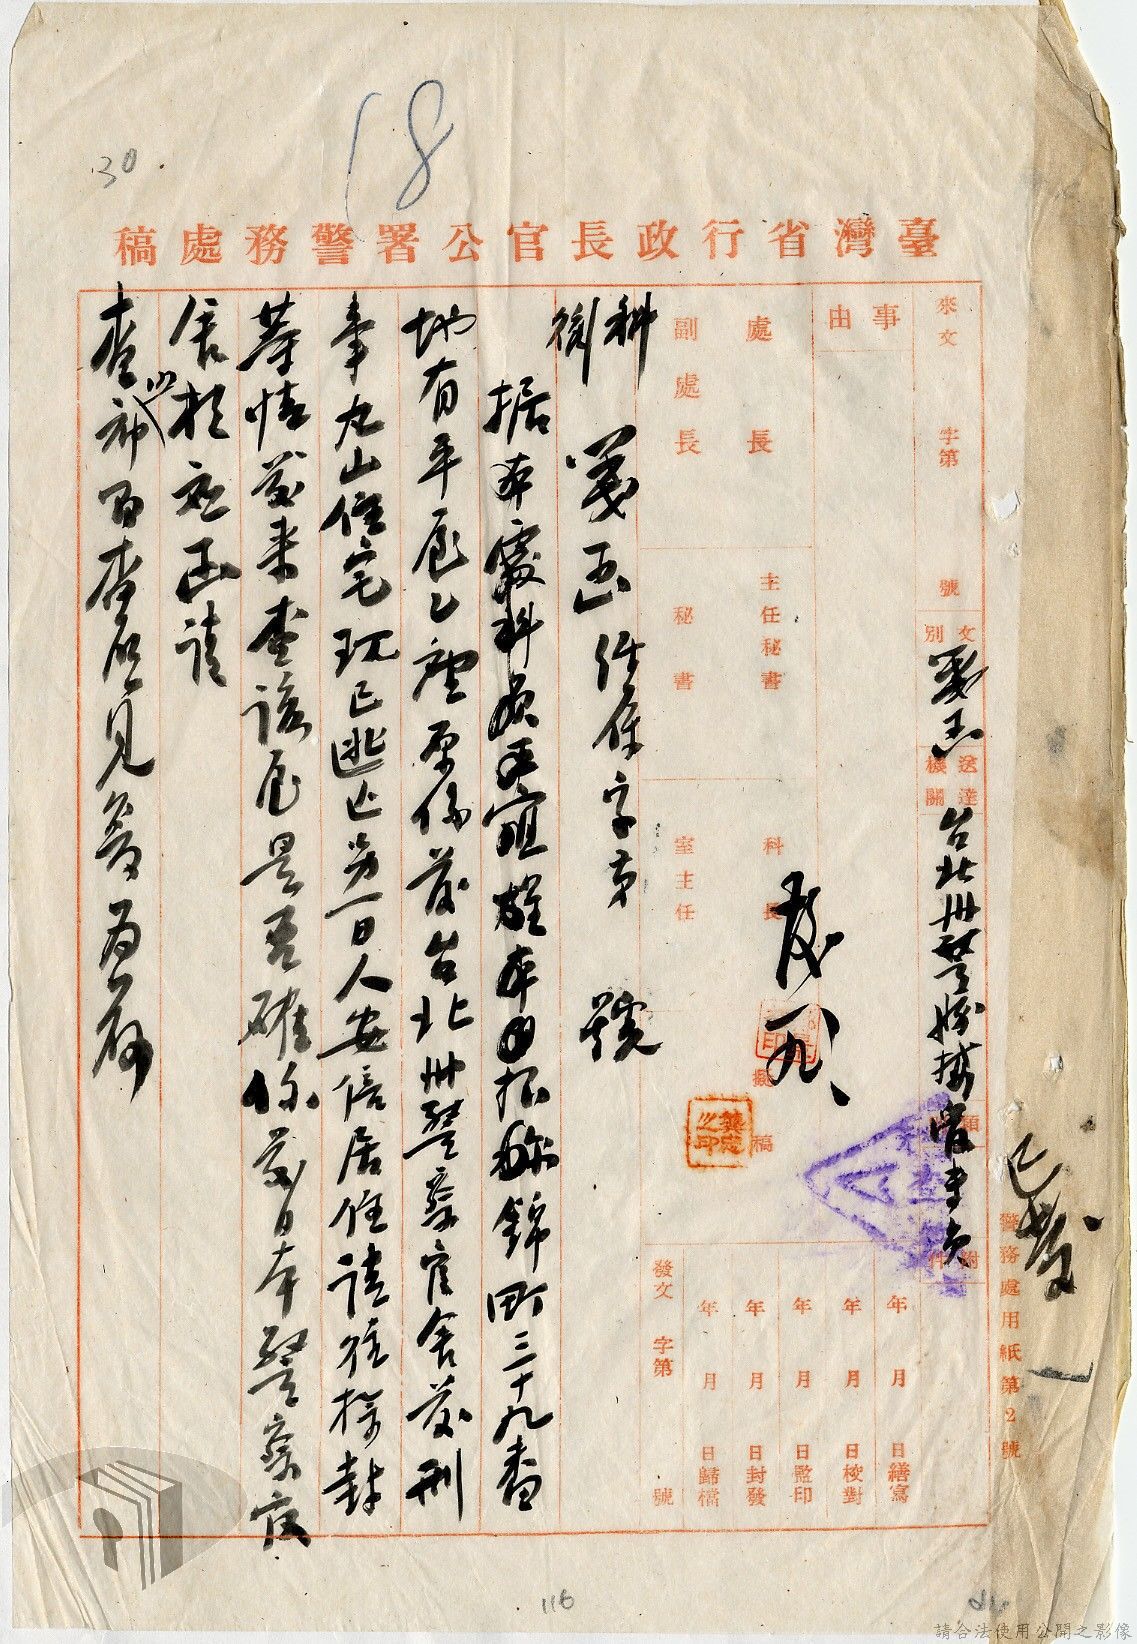 18
30
臺灣省行政長官公署警務處稿
來文 字第 號
文別 箋函
送達機關 台北州警務接管專員
附件
類別
事由
處長
副處長
主任秘書
秘書
科長
室主任
擬稿
年 月 日繕寫
年 月 日校對
年 月 日監印
年 月 日封發
年 月 日歸檔
發文 字第 號
已發
警務處用紙第2號
科銜 箋函 字第 號
據本處科員 報稱錦町三十九番
地有平屋乙座原係前台北州警察官舍前刑
事丸山住宅現已逃亡另一日人安信居住請往標封
等情前來查該屋是否確係前日本警察宿
舍相應函請
查 見復為荷
116
請合法使用公開之影像